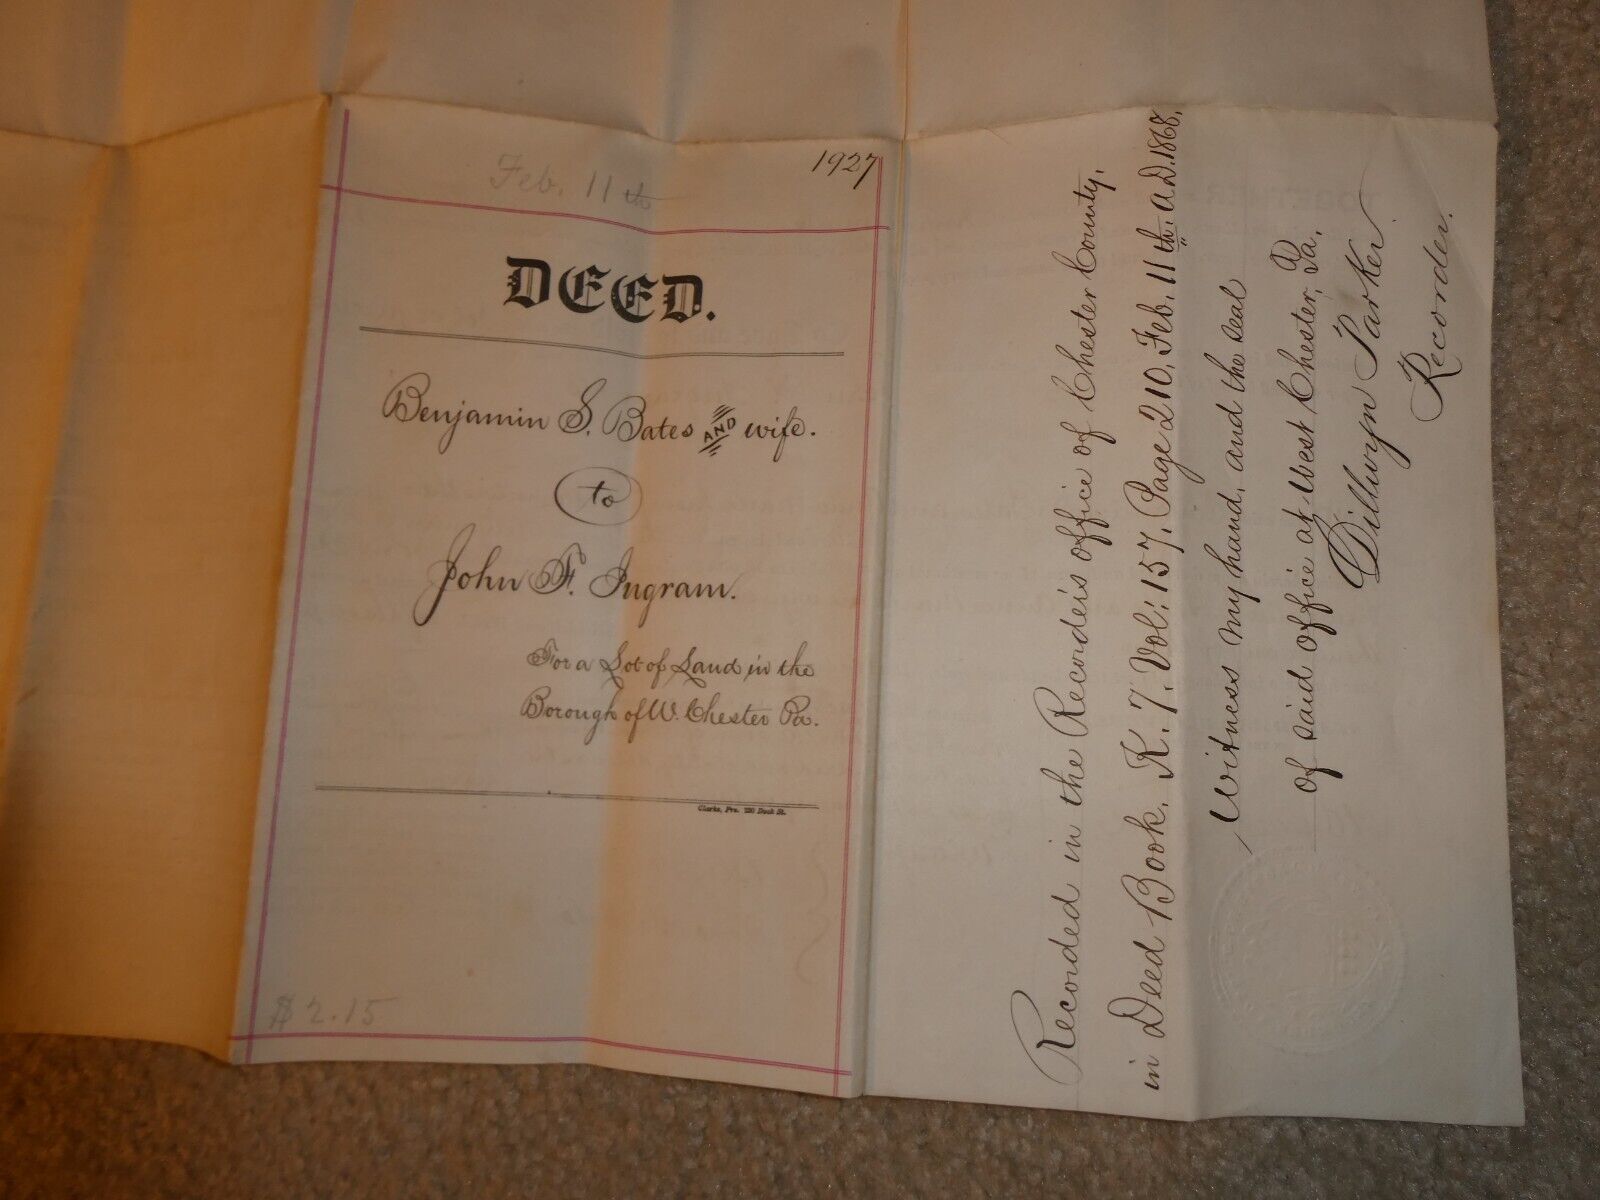 Feb. 11th
1927
DEED.
Benjamin S. Bates AND wife.
to
John F. Ingram.
For a Lot of Land in the
Borough of W. Chester Pa.
Clarke, Prs. 230 Dock St.
$2.15
Recorded in the Recorder's office of Chester County,
in Deed Book, K. 7. Vol: 157. Page 210, Feb. 11th. A.D. 1868.
Witness my hand, and the seal
of said office at West Chester, Pa.
Dillwyn Parker
Recorder.